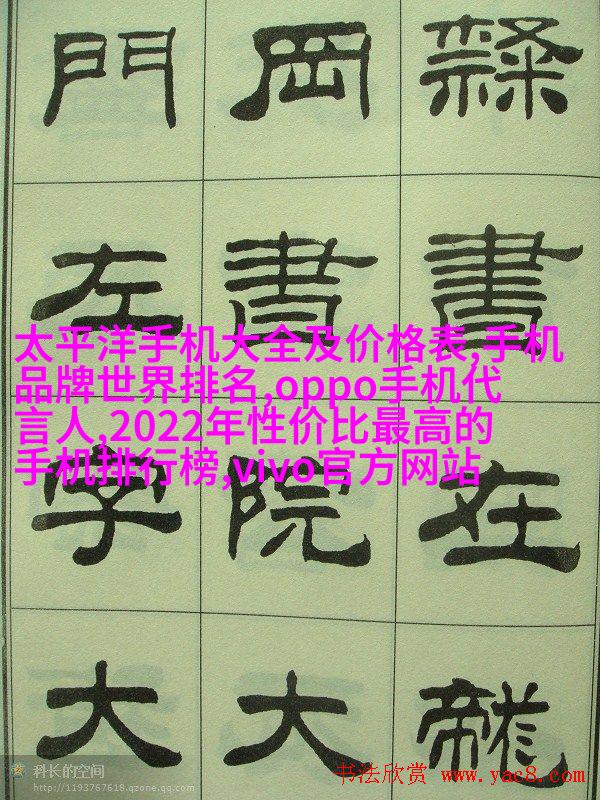 隸書在龍
岡書院大
門左字大
太平洋手机大全及价格表,手机
品牌世界排名,oppo手机代
言人,2022年性价比最高的
手机排行榜,vivo官方网站
科长的空间
http://1193767618.qzone.qq.com
书法欣赏 www.yac8.com